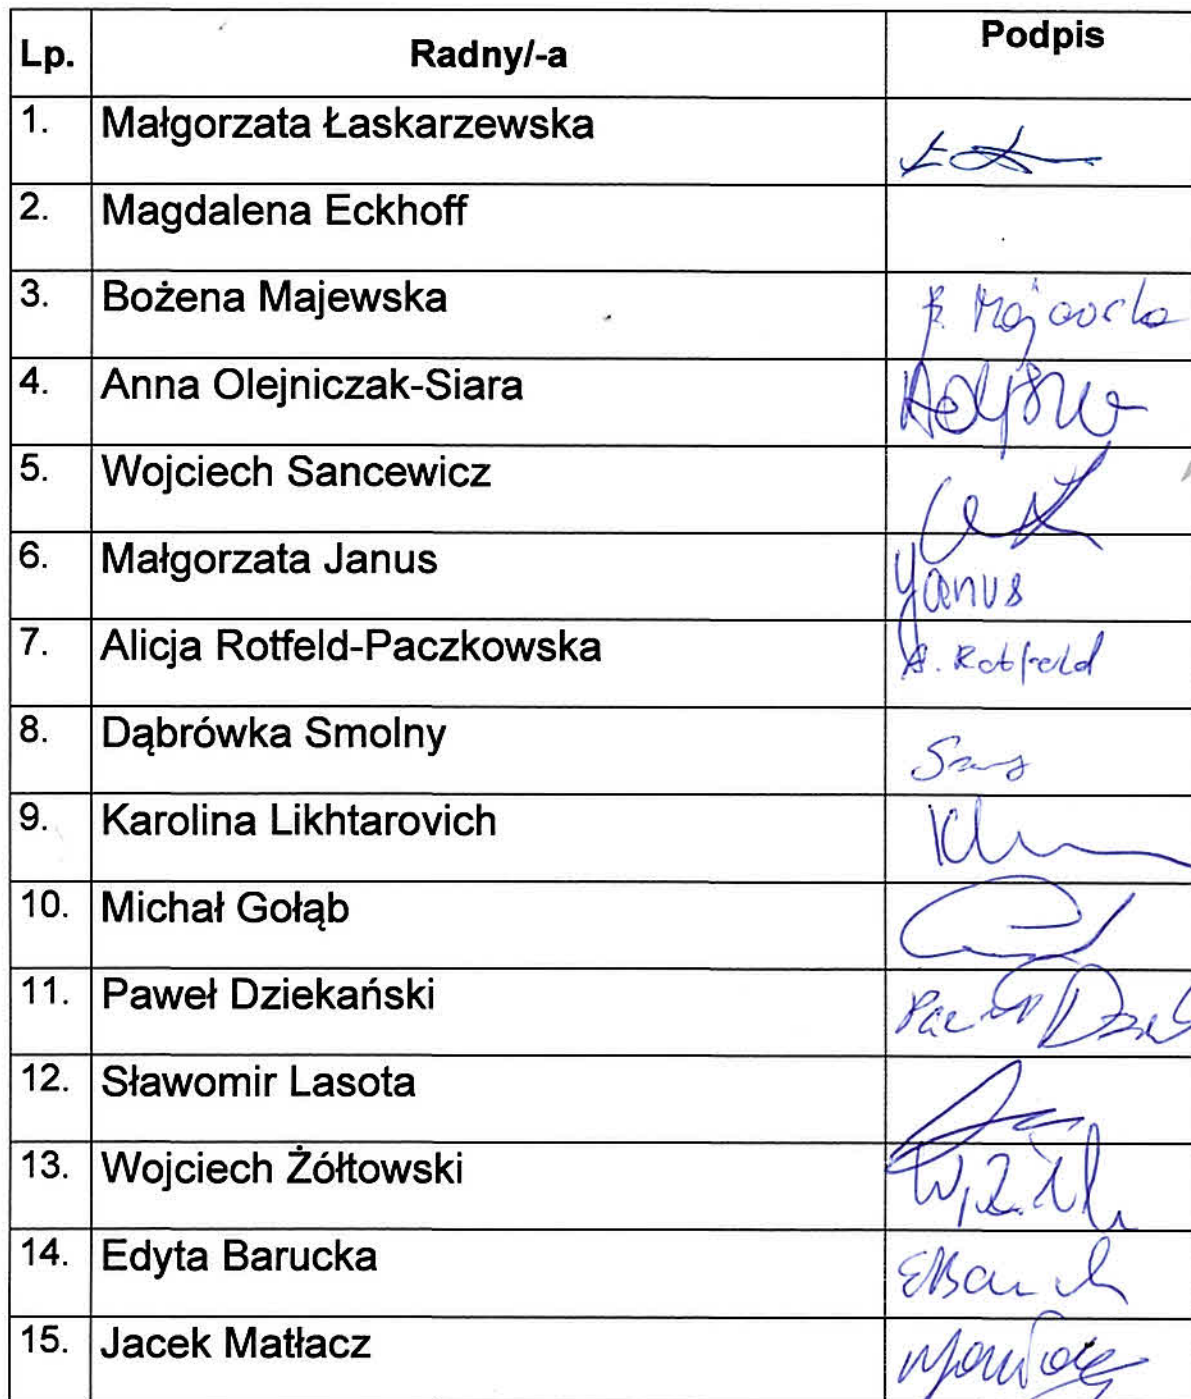 Lp. Radny/-a Podpis
1. Małgorzata Łaskarzewska
2. Magdalena Eckhoff
3. Bożena Majewska B. Majewska
4. Anna Olejniczak-Siara
5. Wojciech Sancewicz
6. Małgorzata Janus Janus
7. Alicja Rotfeld-Paczkowska A. Rotfeld
8. Dąbrówka Smolny
9. Karolina Likhtarovich
10. Michał Gołąb
11. Paweł Dziekański Paweł
12. Sławomir Lasota
13. Wojciech Żółtowski
14. Edyta Barucka
15. Jacek Matłacz